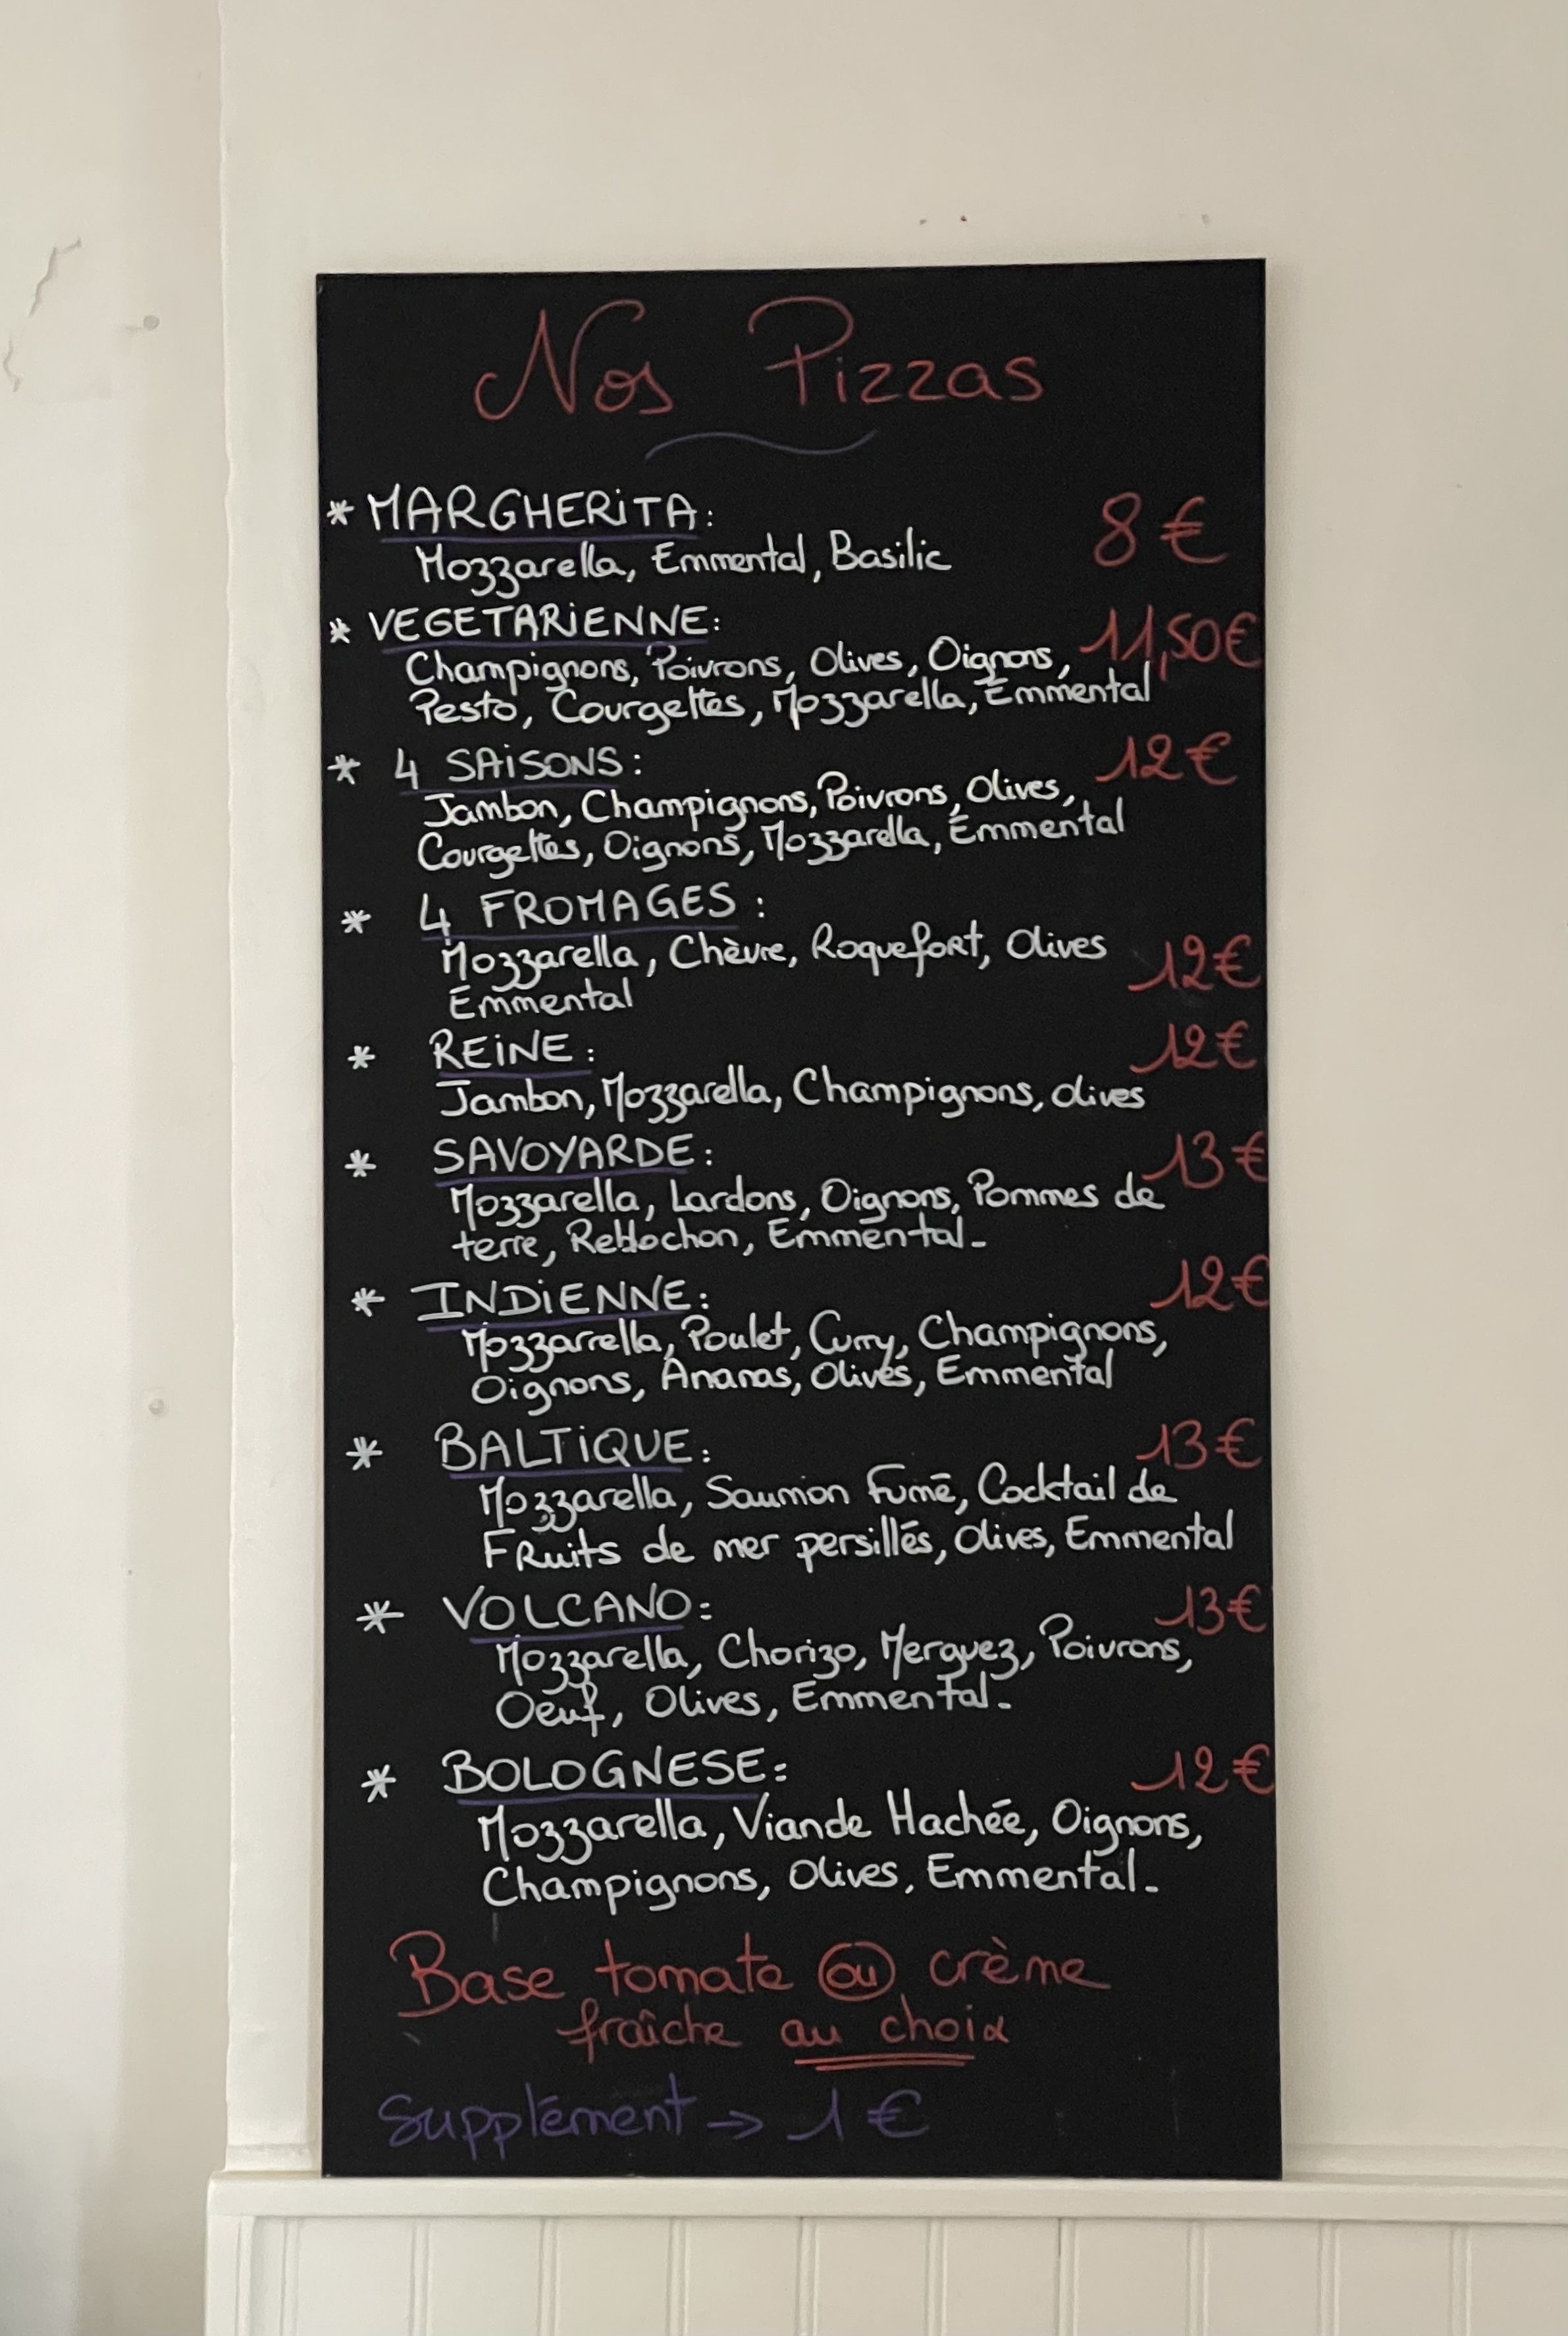 Nos Pizzas
* MARGHERITA: 8€
Mozzarella, Emmental, Basilic
* VEGETARIENNE: 11,50€
Champignons, Poivrons, Olives, Oignons,
Pesto, Courgettes, Mozzarella, Emmental
* 4 SAISONS: 12€
Jambon, Champignons, Poivrons, Olives,
Courgettes, Oignons, Mozzarella, Emmental
* 4 FROMAGES:
Mozzarella, Chèvre, Roquefort, Olives 12€
Emmental
* REINE: 12€
Jambon, Mozzarella, Champignons, olives
* SAVOYARDE: 13€
Mozzarella, Lardons, Oignons, Pommes de
terre, Reblochon, Emmental-
* INDIENNE: 12€
Mozzarrella, Poulet, Curry, Champignons,
Oignons, Ananas, Olives, Emmental
* BALTIQUE: 13€
Mozzarella, Saumon Fumé, Cocktail de
Fruits de mer persillés, Olives, Emmental
* VOLCANO: 13€
Mozzarella, Chorizo, Merguez, Poivrons,
Oeuf, Olives, Emmental-
* BOLOGNESE: 12€
Mozzarella, Viande Hachée, Oignons,
Champignons, Olives, Emmental-
Base tomate ou crème
fraîche au choix
Supplément → 1€